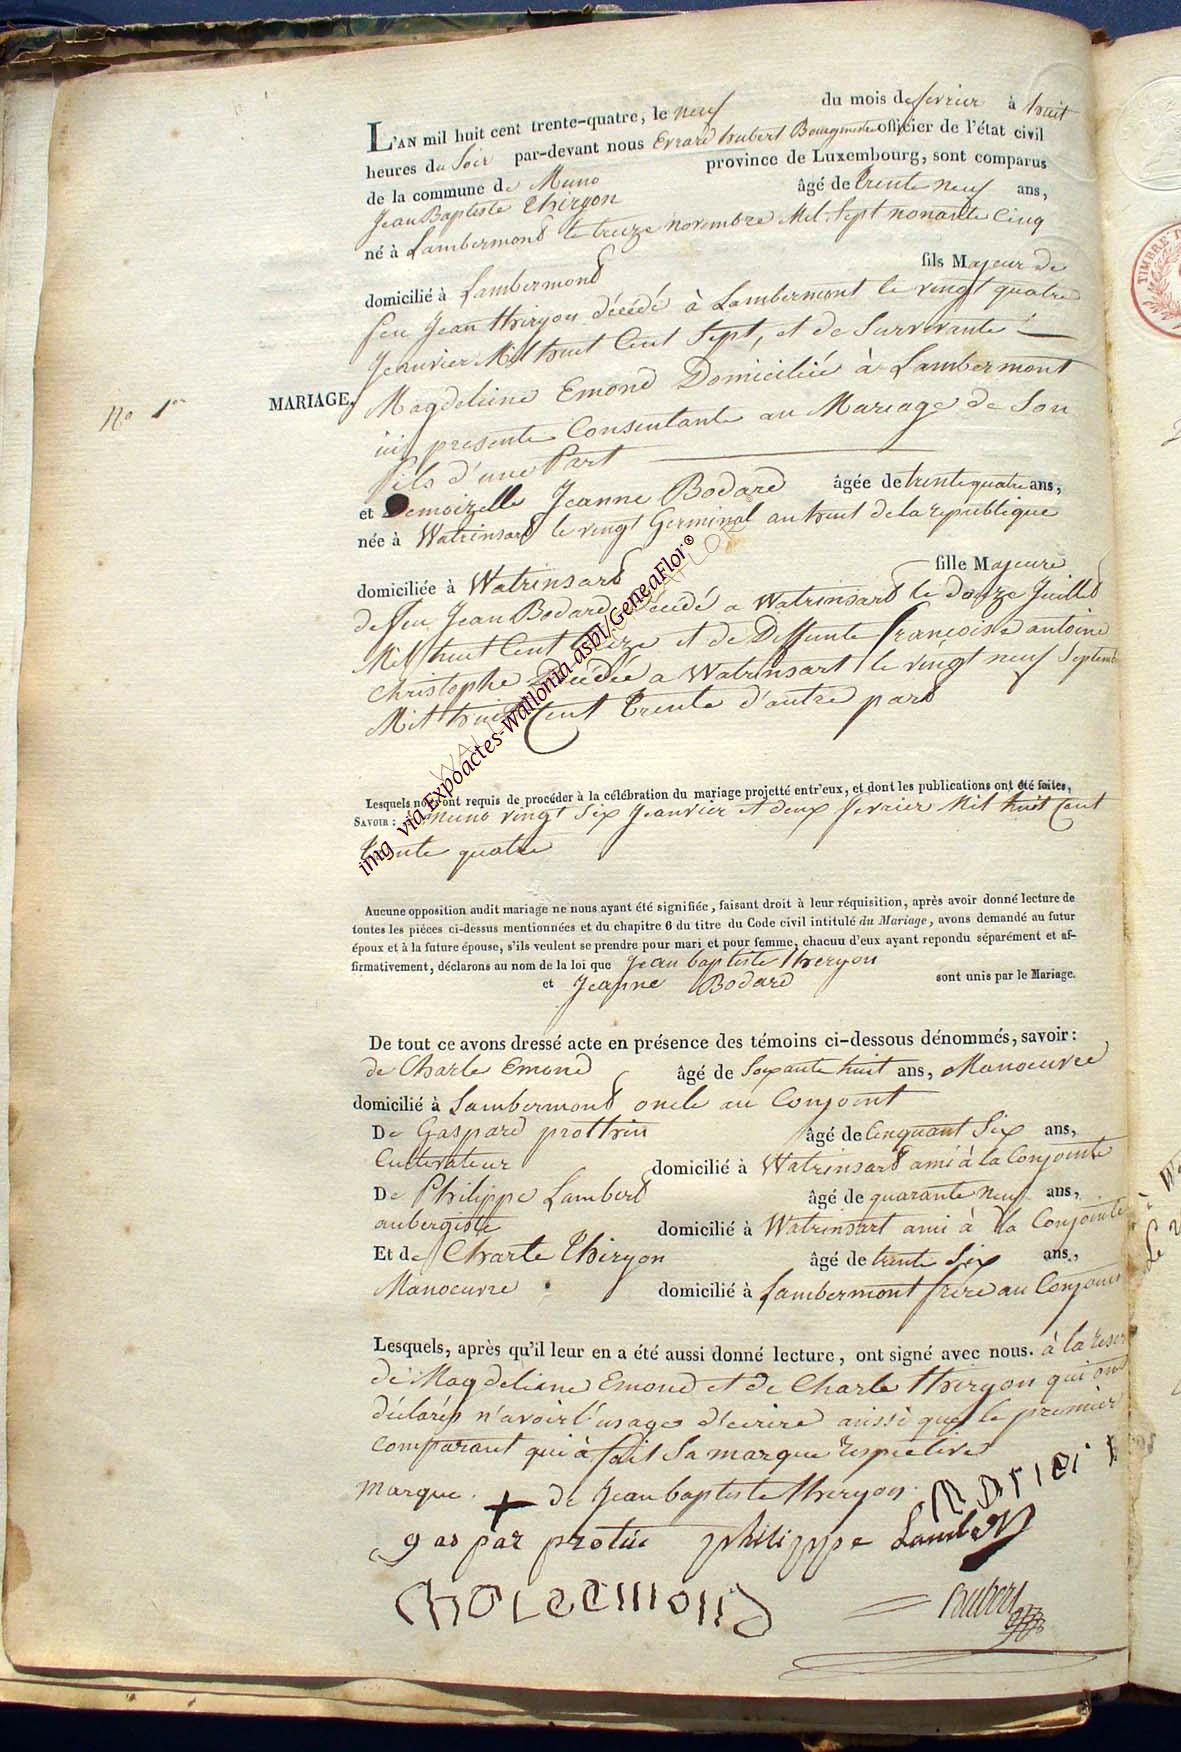 L'AN mil huit cent trente-quatre, le neuf du mois de fevrier à huit
heures du Soir par-devant nous Evrard hubert Bourgmestre officier de l'état civil
de la commune de Muno province de Luxembourg, sont comparus
Jean Baptiste Thiryon âgé de trente neuf ans,
né à Lambermont le treize novembre Mil Sept nonante Cinq
domicilié à Lambermont fils Majeur de
feu Jean thiryon décédé à Lambermont le vingt quatre
Jeanvier Mil huit Cent Sept, et de Survivante
No 1er MARIAGE. Magdeleine Emond Domiciliée à Lambermont
ici presente Consentante au Mariage de Son
fils d'une Part
et Demoizelle Jeanne Bodard âgée de trente quatre ans,
née à Watrinsart le vingt Germinal an huit de la republique
domiciliée à Watrinsart fille Majeure
de feu Jean Bodard décédé a Watrinsart le douze Juillet
Mil huit Cent et de Deffunte françoise antoine
christophe Décédée a Watrinsart le vingt neuf Septemb
Mil huit Cent trente d'autre part
Lesquels nous ont requis de procéder à la célébration du mariage projetté entr'eux, et dont les publications ont été faites,
SAVOIR : à Muno vingt Six Jeanvier et deux fevrier Mil huit Cent
trente quatre
Aucune opposition audit mariage ne nous ayant été signifiée, faisant droit à leur réquisition, après avoir donné lecture de
toutes les pièces ci-dessus mentionnées et du chapitre 6 du titre du Code civil intitulé du Mariage, avons demandé au futur
époux et à la future épouse, s'ils veulent se prendre pour mari et pour femme, chacuu d'eux ayant repondu séparément et af-
firmativement, déclarons au nom de la loi que Jean baptiste thiryon
et Jeanne Bodard sont unis par le Mariage.
De tout ce avons dressé acte en présence des témoins ci-dessous dénommés, savoir :
de Charle Emond âgé de Soixante huit ans, Manoeuvre
domicilié à Lambermont oncle au Conjoint
De Gaspard prottin âgé de Cinquant Six ans,
Cultivateur domicilié à Watrinsart ami à la Conjointe
De Philippe Lambert âgé de quarante neuf ans,
aubergiste domicilié à Watrinsart ami à la Conjointe
Et de Charle Thiryon âgé de trente Six ans,
Manoeuvre domicilié à Lambermont frère au Conjoint
Lesquels, après qu'il leur en a été aussi donné lecture, ont signé avec nous. à la reser
de Magdeleine Emond et de Charle thiryon qui ont
déclarés n'avoir l'usage d'ecrire aussi que le premier
comparant qui à fait Sa marque respective
marque. + de Jean baptiste thiryon.
gaspar protin philippe Lambert
hubert
img via Expoactes-Wallonia-asbl/GeneaFlor®
TIMBRE